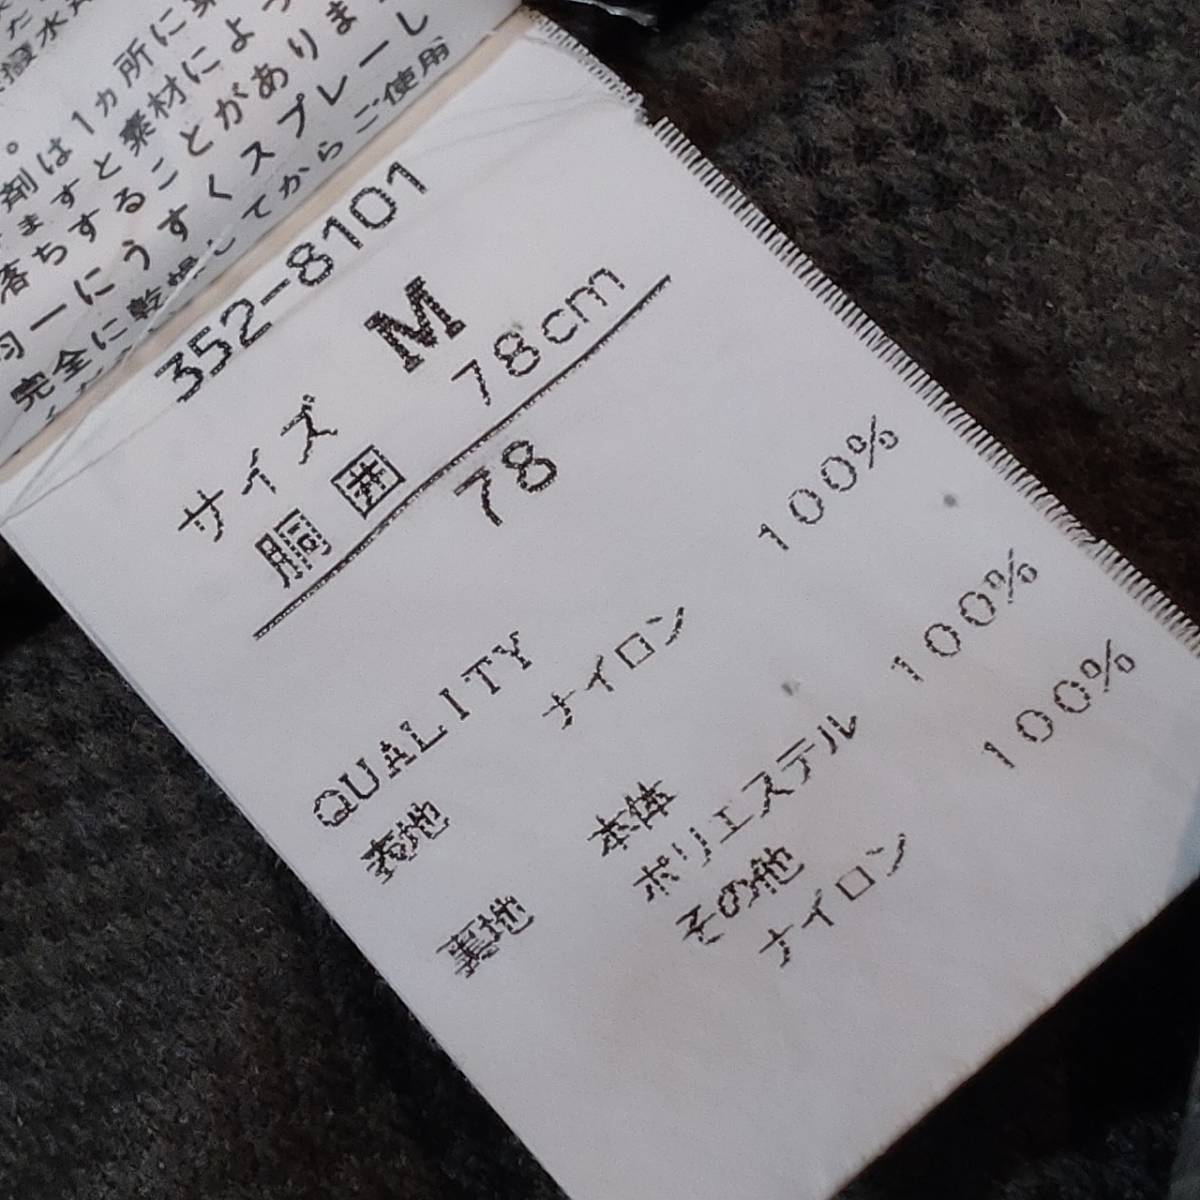 撥水
剤は1ヵ所に
ますと素材によっ
落ちすることがありま
匀一にうすくスプレーし
完全に乾燥してからご使用
352-8101
サイズ M
胴囲 78cm
78
QUALITY
表地 ナイロン 100%
裏地 本体
ポリエステル 100%
その他
ナイロン 100%